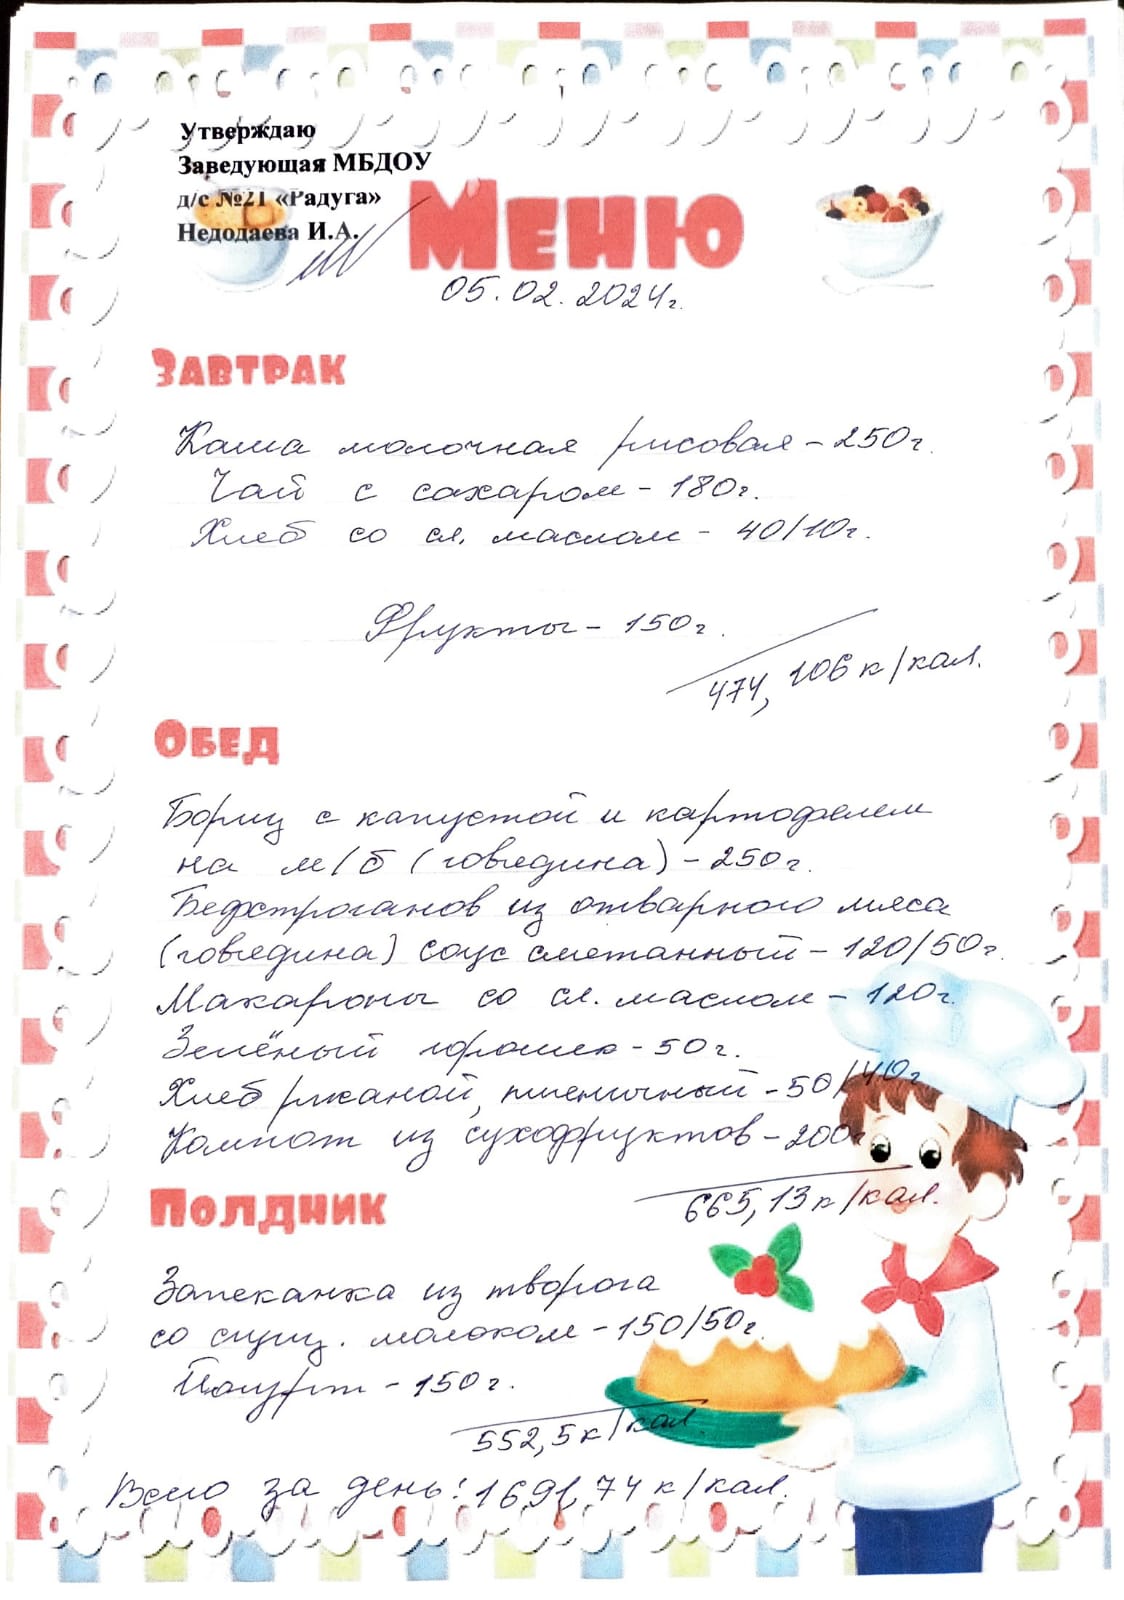 Утверждаю
Заведующая МБДОУ
д/с №21 «Радуга»
Недодаева И.А.
Меню
05.02.2024г.
Завтрак
Каша молочная рисовая - 250г.
Чай с сахаром - 180г.
Хлеб со сл. маслом - 40/10г.
Фрукты - 150г.
474,106 к/кал.
Обед
Борщ с капустой и картофелем
на м/б (говядина) - 250г.
Бефстроганов из отварного мяса
(говядина) соус сметанный - 120/50г.
Макароны со сл. маслом - 120г.
Зелёный горошек - 50г.
Хлеб ржаной, пшеничный - 50/40г
Компот из сухофруктов - 200г
665,13 к/кал.
Полдник
Запеканка из творога
со сгущ. молоком - 150/50г.
Йогурт - 150г.
552,5 к/кал
Всего за день: 1691,74 к/кал.